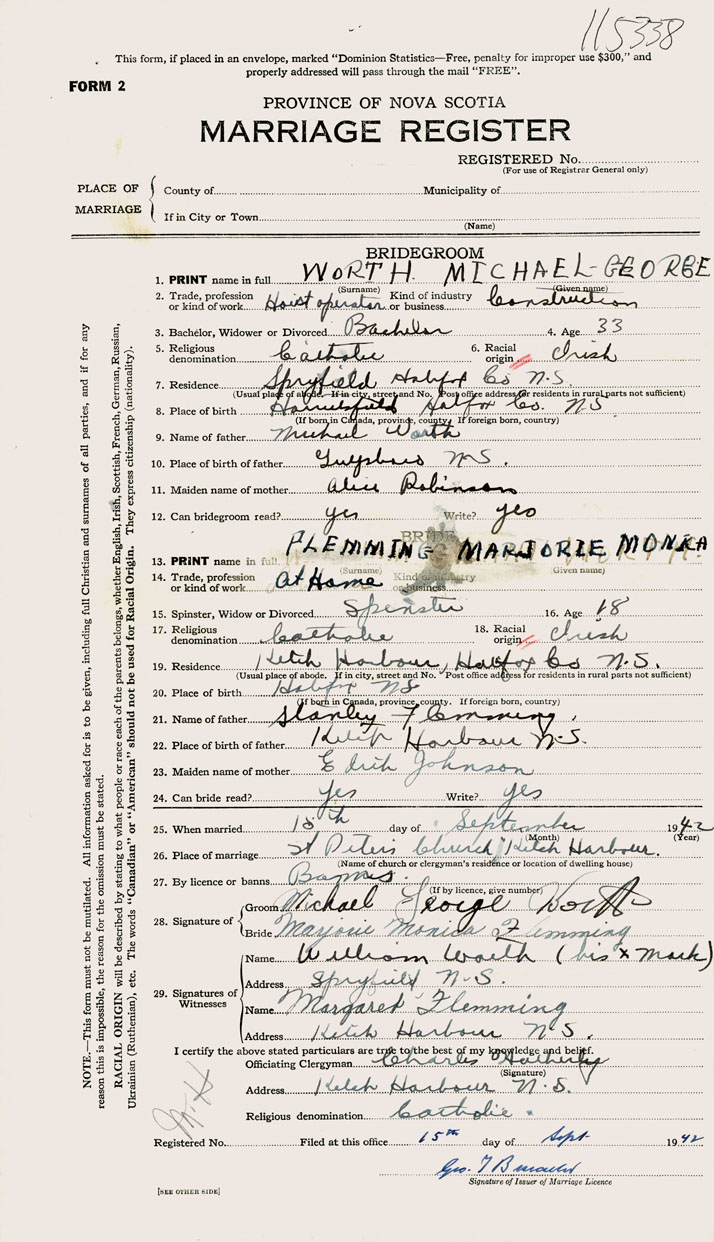 115338
This form, if placed in an envelope, marked "Dominion Statistics—Free, penalty for improper use $300," and
properly addressed will pass through the mail "FREE".
FORM 2
PROVINCE OF NOVA SCOTIA
MARRIAGE REGISTER
REGISTERED No.
(For use of Registrar General only)
PLACE OF MARRIAGE
County of Municipality of
If in City or Town
(Name)
BRIDEGROOM
1. PRINT name in full WORTH MICHAEL-GEORGE
(Surname) (Given name)
2. Trade, profession or kind of work Hoist operator Kind of industry or business Construction
3. Bachelor, Widower or Divorced Bachelor 4. Age 33
5. Religious denomination Catholic 6. Racial origin Irish
7. Residence Spryfield Halifax Co N.S.
(Usual place of abode. If in city, street and No. Post office address for residents in rural parts not sufficient)
8. Place of birth Harrietsfield Halifax Co. N S
(If born in Canada, province, county. If foreign born, country)
9. Name of father Michael Worth
10. Place of birth of father Guysboro N S.
11. Maiden name of mother Alice Robinson
12. Can bridegroom read? yes Write? yes
BRIDE
13. PRINT name in full FLEMMING MARJORIE MONICA
(Surname) Given name)
14. Trade, profession or kind of work at Home Kind of industry or business
15. Spinster, Widow or Divorced Spinster 16. Age 18
17. Religious denomination Catholic 18. Racial origin Irish
19. Residence Ketch Harbour, Halifax Co N.S.
(Usual place of abode. If in city, street and No. Post office address for residents in rural parts not sufficient)
20. Place of birth Halifax NS
(If born in Canada, province, county. If foreign born, country)
21. Name of father Stanley Flemming
22. Place of birth of father Ketch Harbour N.S.
23. Maiden name of mother Edith Johnson
24. Can bride read? Yes Write? yes
25. When married day of September 1942
(Month) (Year)
26. Place of marriage St Peters Church Ketch Harbour.
(Name of church or clergyman's residence or location of dwelling house)
27. By licence or banns
(If by licence, give number)
28. Signature of
Groom Michael George Worth
Bride Marjorie Monica Flemming
29. Signatures of Witnesses
Name William Worth (his x mark)
Address Spryfield N-S.
Name Margaret Flemming
Address Ketch Harbour N S.
I certify the above stated particulars are true to the best of my knowledge and belief.
Officiating Clergyman Charles
(Signature)
Address Ketch Harbour N.S.
Religious denomination Catholic
Registered No. Filed at this office 15th day of Sept 1942
Geo. T
Signature of Issuer of Marriage Licence
[SEE OTHER SIDE]
NOTE.—This form must not be mutilated. All information asked for is to be given, including full Christian and surnames of all parties, and if for any
reason this is impossible, the reason for the omission must be stated.
RACIAL ORIGIN will be described by stating to what people or race each of the parents belongs, whether English, Irish, Scottish, French, German, Russian,
Ukrainian (Ruthenian), etc. The words "Canadian" or "American" should not be used for Racial Origin. They express citizenship (nationality).